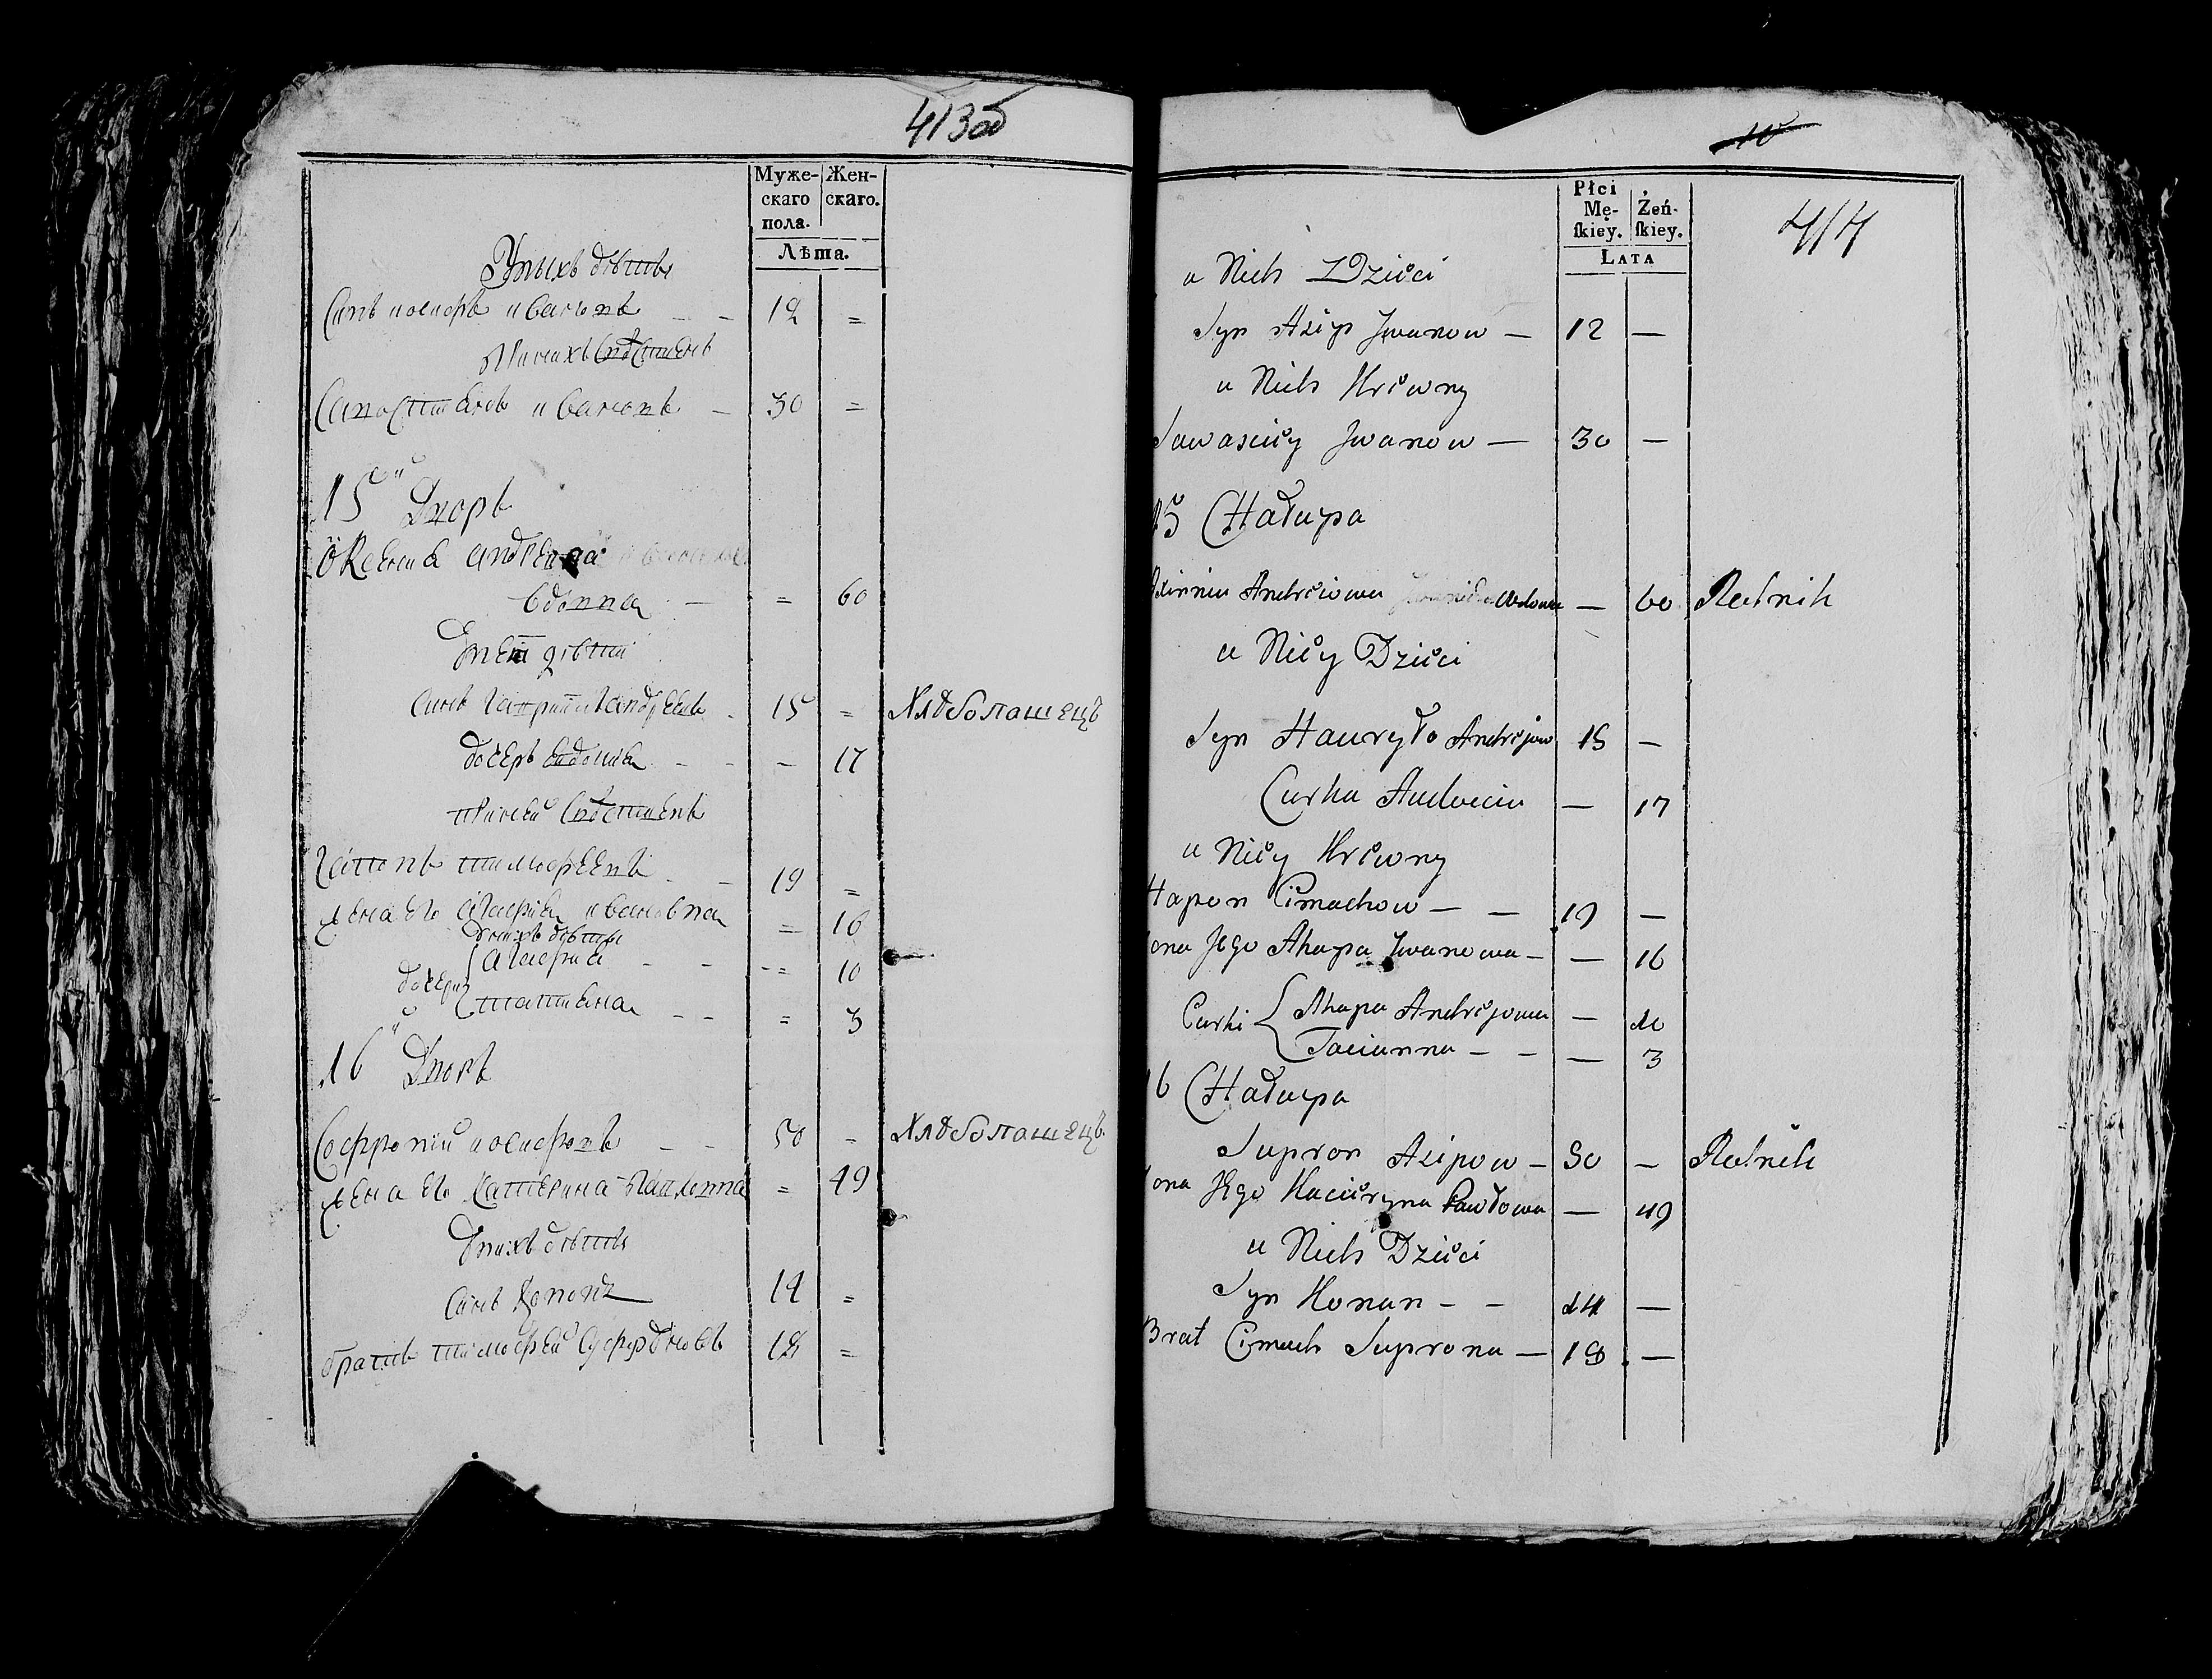 413об
Муже-
скаго
пола.
Жен-
скаго.
Лѣта.
У ныхъ дѣты
Синъ иосифъ ивановъ 12 =
Ѣ нихъ сво
ивановъ — 30 =
15й Дворъ
Ѡксеня андреева
вдовва — = 60
У неи дѣти
Синъ гаврiилъ андреевъ 15 = Хлѣбопашецъ
дочеръ евдокия — 17
гапонъ тимофеевъ 19 =
жена его агафия ивановна = 16
У нихъ дѣты
дочери агафия = 10
татияна = 3
16й Дворъ
Соффронiй иосифовъ 50 = Хлѣбопашецъ
жена его катерина павловна = 49
У нихъ дѣты
Синъ Кононъ 14 =
братъ тимофей 18 =
10
414
Płci
Mę-
ſkiey.
Żeń-
ſkiey.
LATA
u Nich Dzieci
Syn Asip Jwanow — 12 —
u Nich Krewny
Sawasciey Jwanow — 30 —
15 Chałupa
Axinnia Andreiowa Wdowa — 60 Rolnik
u Niey Dzieci
Syn Hawryło Andrejow 15 —
Curka Audocia — 17
u Niey Krewny
Hapon Cimachow — — 19 —
ona Jego Ahapa Jwanowa — — 16
Curki { Ahapa Andrejowa — 10
Tacianna — — — 3
16 Chałupa
Supron Asipow — 50 — Rolnik
ona Jego Kacieryna Pawłowa — 49
u Nich Dzieci
Syn Konan — — 14 —
Brat Cimach Suprona — 18 —